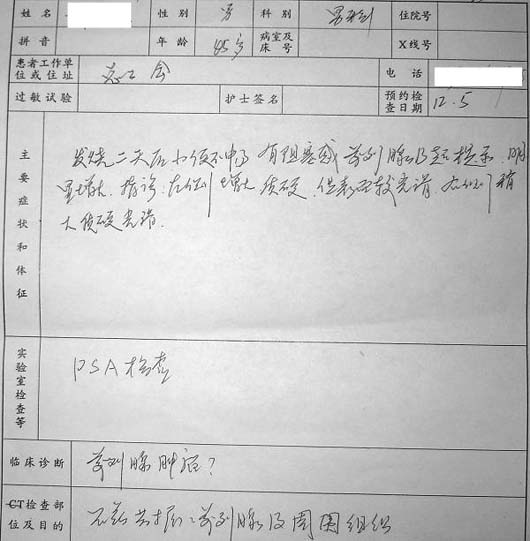 姓名 性别 男 科别 男科 住院号
拼音 年龄 45岁 病室及床号 X线号
患者工作单位或住址 总工会 电话
过敏试验 护士签名 预约检查日期 12.5
主要症状和体征
发烧二天后小便不畅 有阻塞感 前列腺B超提示 明
显增大. 指诊: 左侧叶增大 质硬 但表面较光滑. 右侧叶稍
大质硬光滑.
实验室检查等 PSA检查
临床诊断 前列腺肿瘤?
CT检查部位及目的 前列腺及周围组织